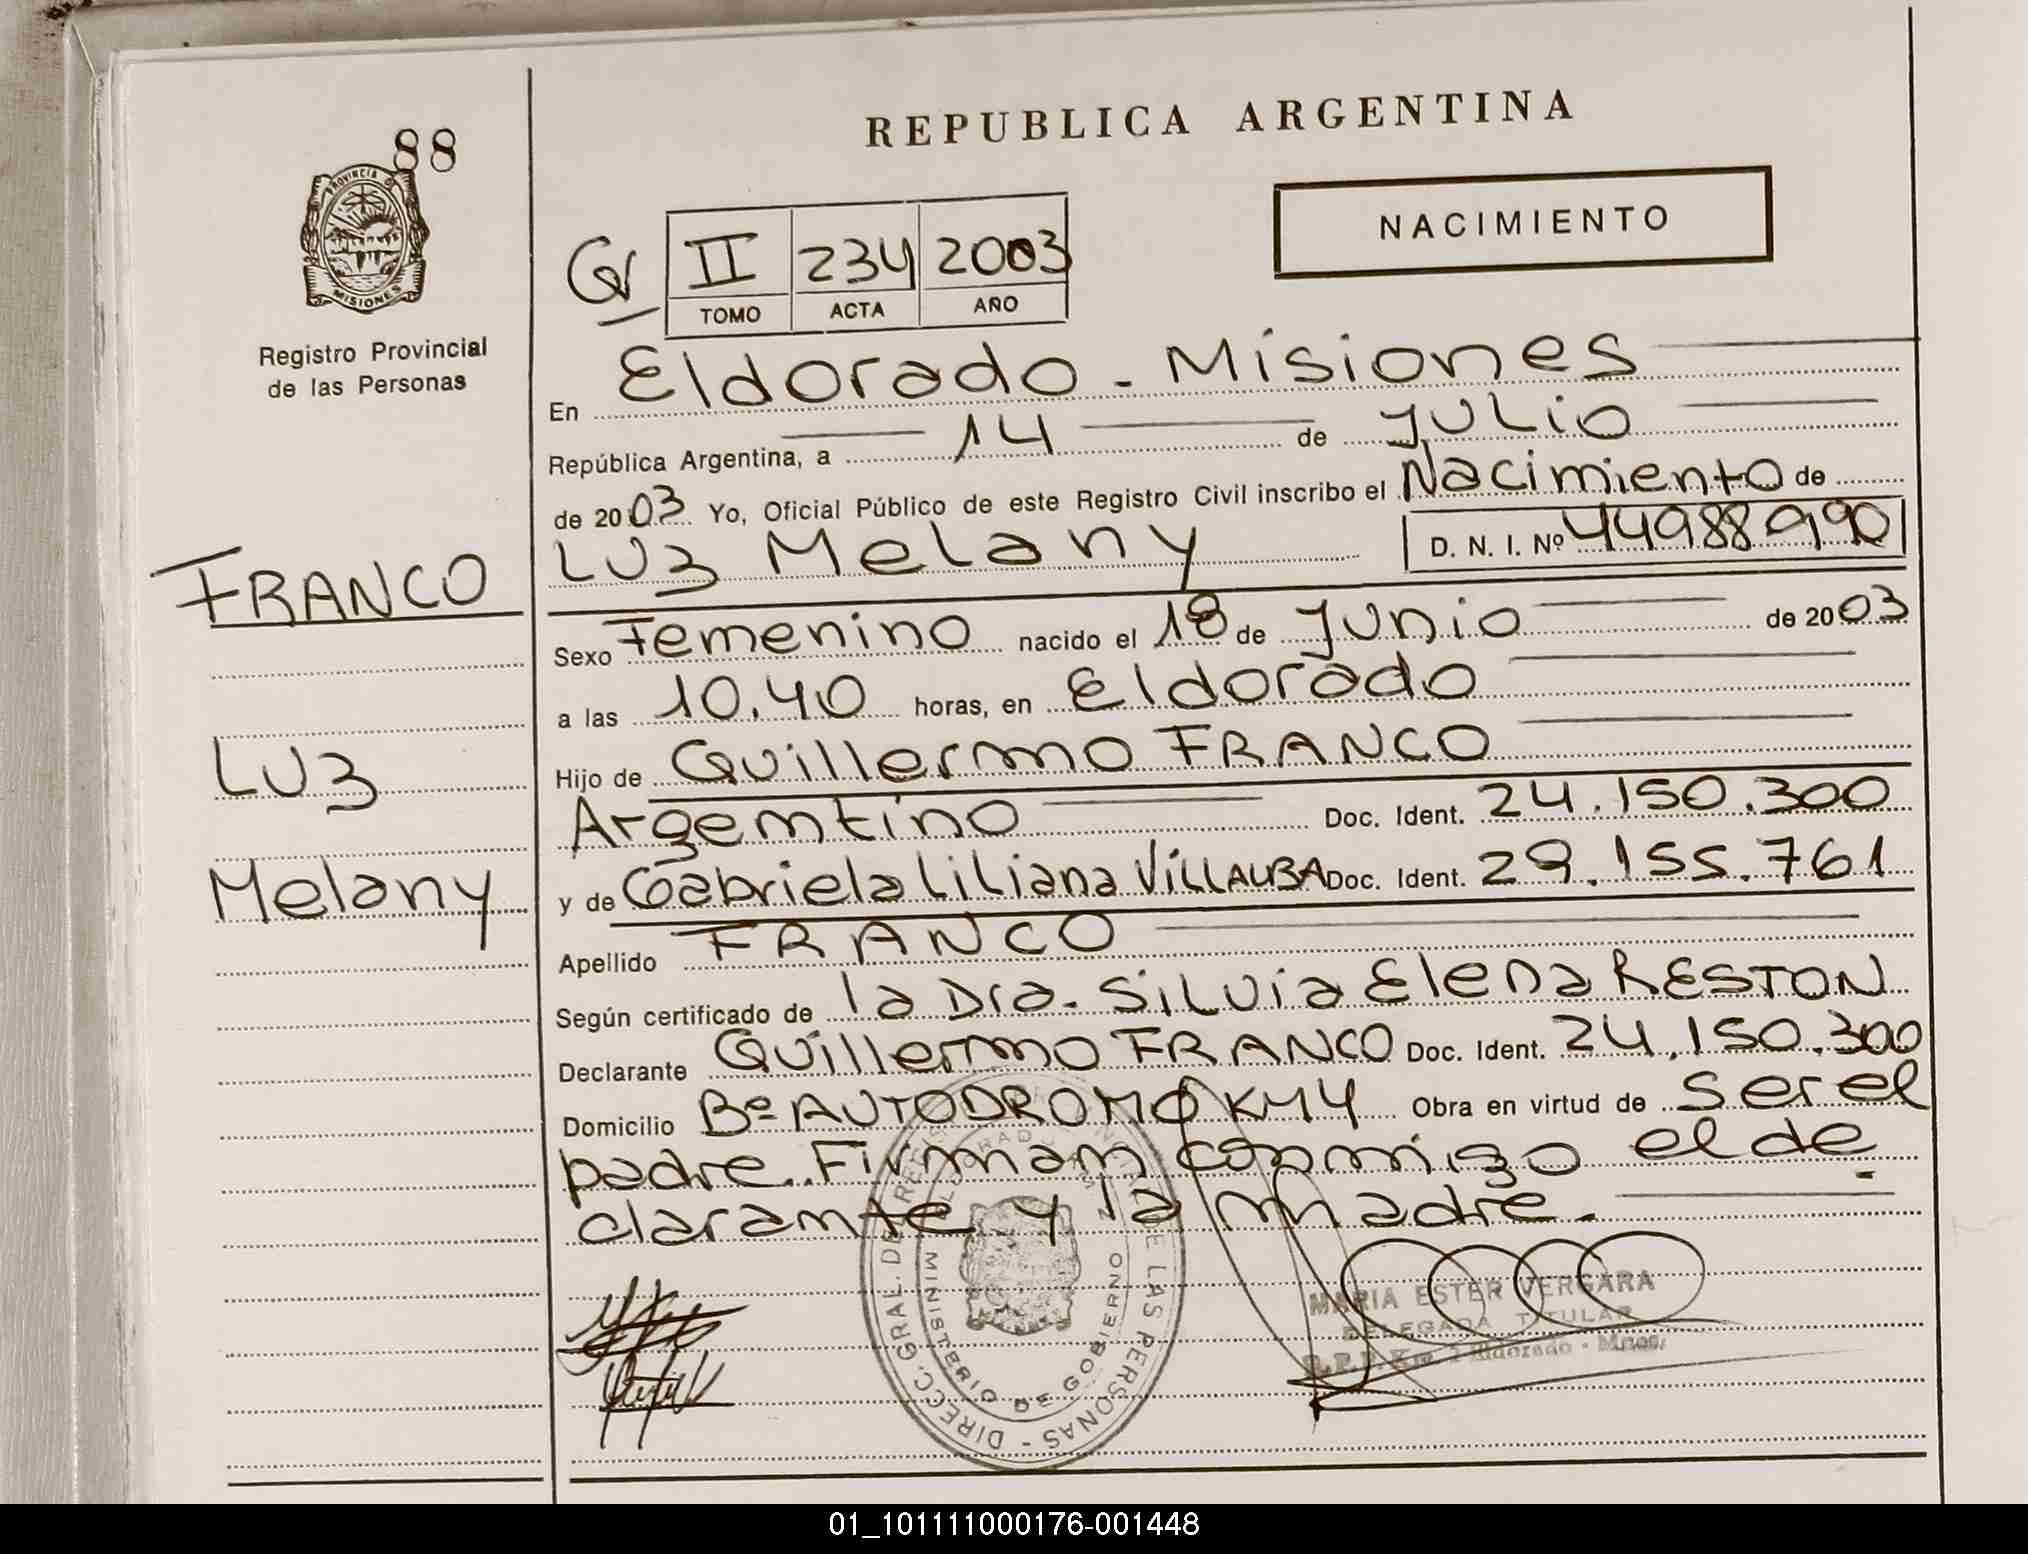 88
PROVINCIA DE
MISIONES
Registro Provincial
de las Personas
FRANCO
LUZ
Melany
REPUBLICA ARGENTINA
NACIMIENTO
II 234 2003
TOMO ACTA AÑO
En Eldorado - Misiones
República Argentina, a 14 de Julio
de 2003 Yo, Oficial Público de este Registro Civil inscribo el Nacimiento de
LUZ Melany D. N. I. Nº 44988990
Sexo Femenino nacido el 18 de Junio de 2003
a las 10,40 horas, en Eldorado
Hijo de Guillermo FRANCO
Argentino Doc. Ident. 24.150.300
y de Gabriela Liliana VILLALBA Doc. Ident. 29.155.761
Apellido FRANCO
Según certificado de la Dra. Silvia Elena RESTON
Declarante Guillermo FRANCO Doc. Ident. 24.150.300
Domicilio Bº AUTODROMO KM 4 Obra en virtud de ser el
padre. Firman conmigo el de
clarante y la madre.
DIRECC. GRAL. DE REG. DE LAS PERSONAS
MINISTERIO DE GOBIERNO
MARIA ESTER VERGARA
DELEGADA TITULAR
Eldorado - Mnes.
01_101111000176-001448